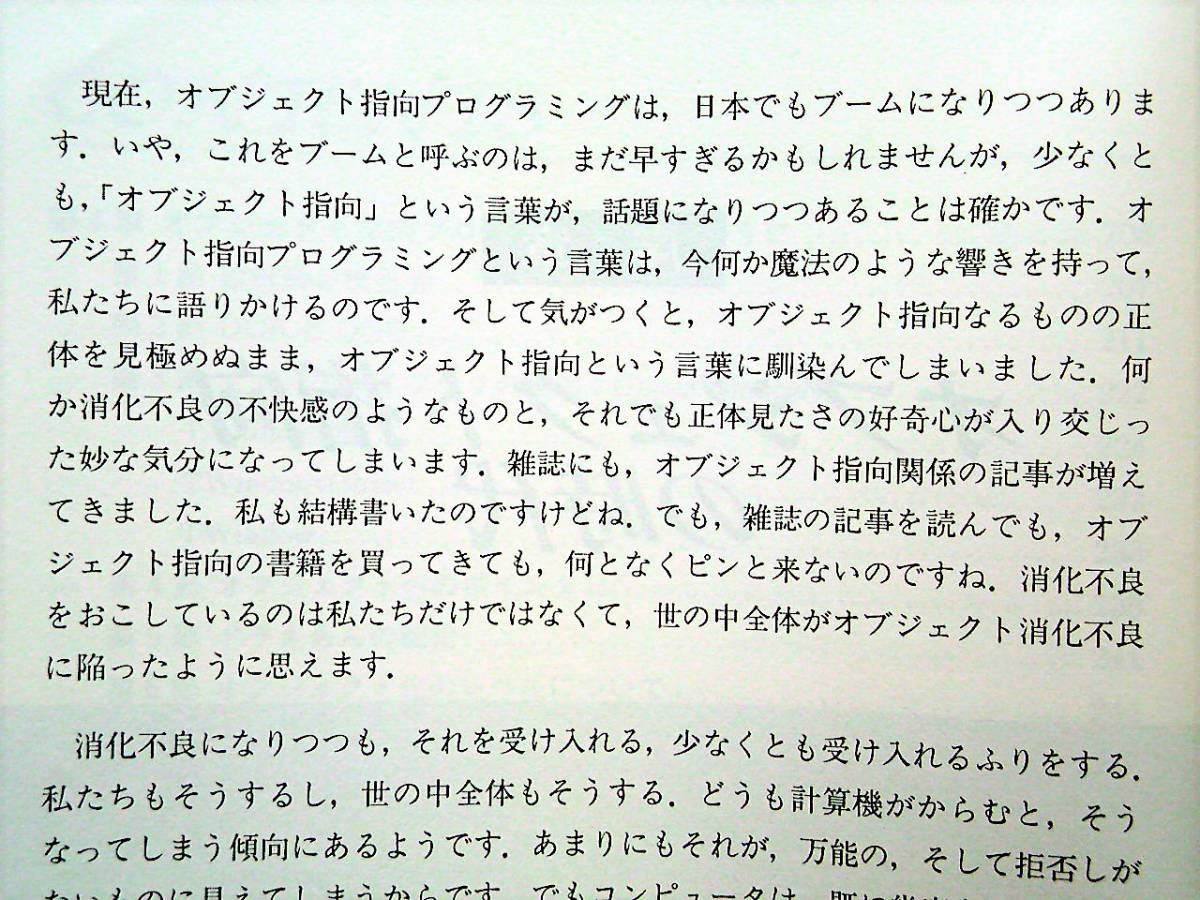 現在，オブジェクト指向プログラミングは，日本でもブームになりつつありま
す．いや，これをブームと呼ぶのは，まだ早すぎるかもしれませんが，少なくと
も，「オブジェクト指向」という言葉が，話題になりつつあることは確かです．オ
ブジェクト指向プログラミングという言葉は，今何か魔法のような響きを持って，
私たちに語りかけるのです．そして気がつくと，オブジェクト指向なるものの正
体を見極めぬまま，オブジェクト指向という言葉に馴染んでしまいました．何
か消化不良の不快感のようなものと，それでも正体見たさの好奇心が入り交じっ
た妙な気分になってしまいます．雑誌にも，オブジェクト指向関係の記事が増え
てきました．私も結構書いたのですけどね．でも，雑誌の記事を読んでも，オブ
ジェクト指向の書籍を買ってきても，何となくピンと来ないのですね．消化不良
をおこしているのは私たちだけではなくて，世の中全体がオブジェクト消化不良
に陥ったように思えます．
消化不良になりつつも，それを受け入れる，少なくとも受け入れるふりをする．
私たちもそうするし，世の中全体もそうする．どうも計算機がからむと，そう
なってしまう傾向にあるようです．あまりにもそれが，万能の，そして拒否しが
たいものに見えてしまうからです．でもコンピュータは，既に